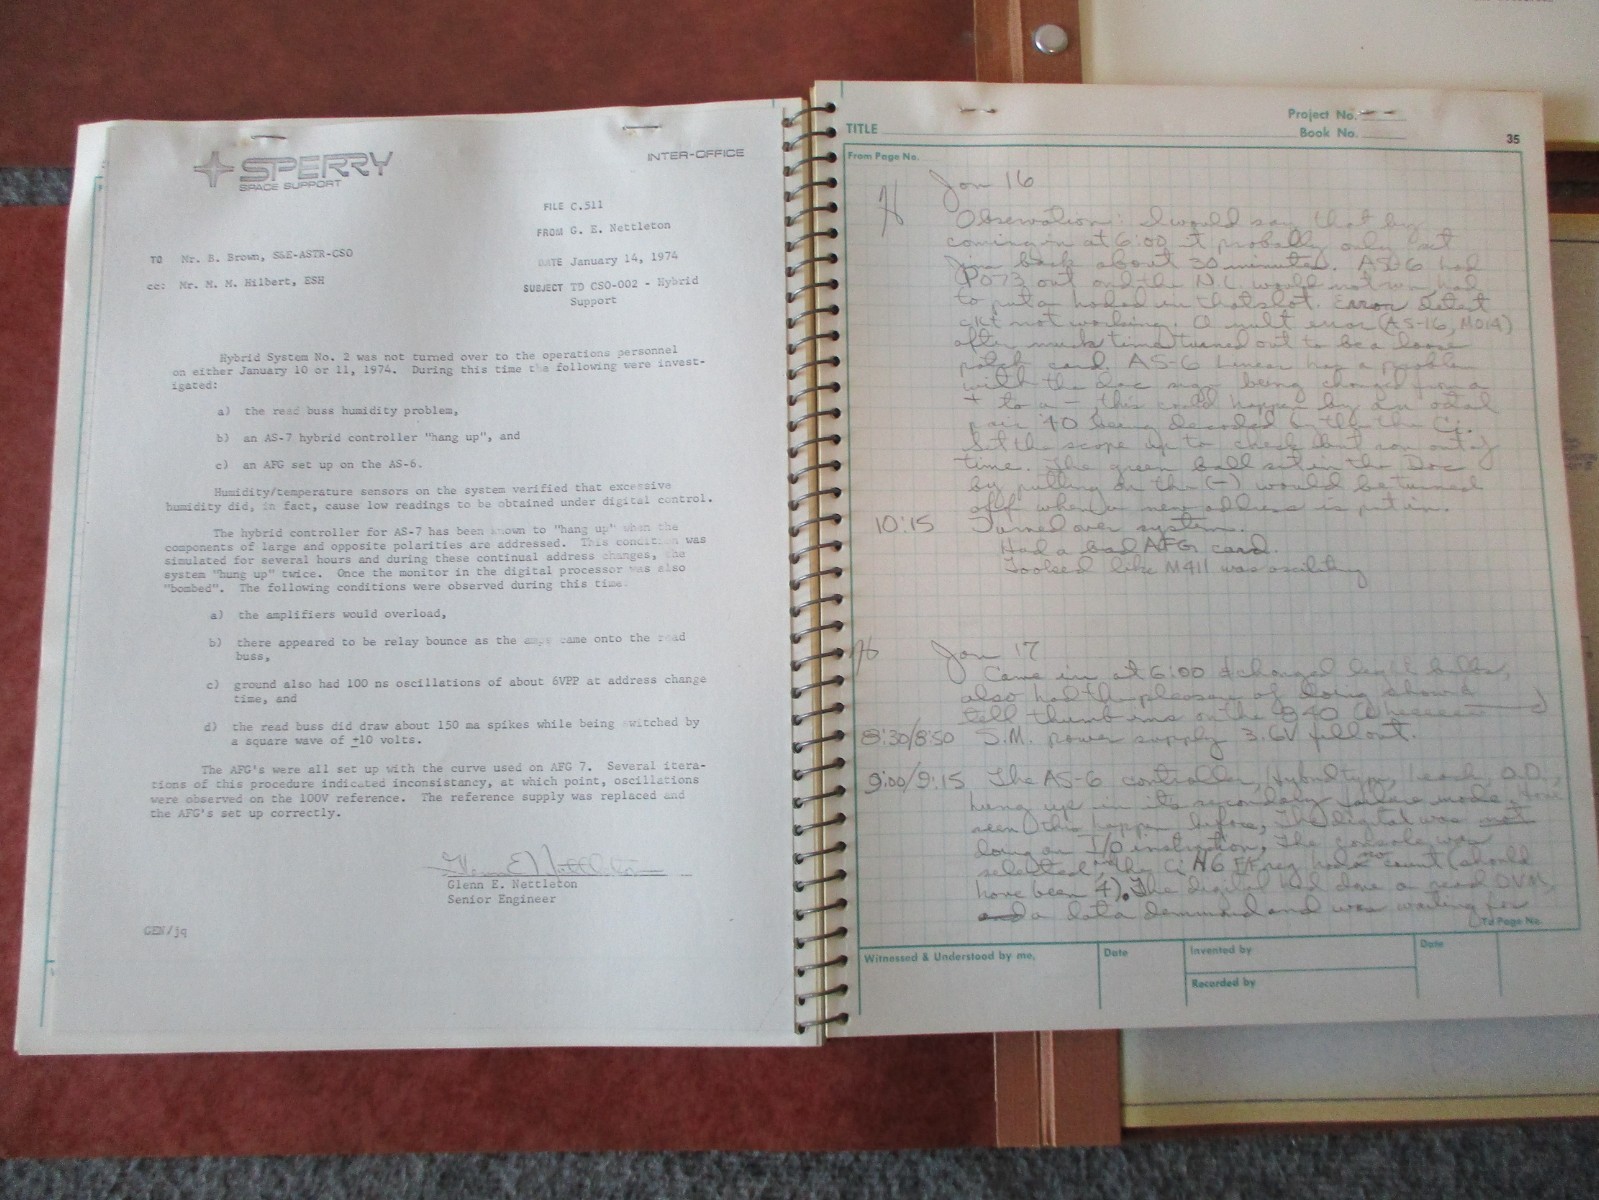 SPERRY
SPACE SUPPORT
INTER-OFFICE
FILE C.511
FROM G. E. Nettleton
DATE January 14, 1974
SUBJECT TD CSO-002 - Hybrid
Support
TO Mr. B. Brown, S&E-ASTR-CSO
cc: Mr. M. M. Hilbert, ESH
Hybrid System No. 2 was not turned over to the operations personnel
on either January 10 or 11, 1974. During this time the following were invest-
igated:
a) the read buss humidity problem,
b) an AS-7 hybrid controller "hang up", and
c) an AFG set up on the AS-6.
Humidity/temperature sensors on the system verified that excessive
humidity did, in fact, cause low readings to be obtained under digital control.
The hybrid controller for AS-7 has been known to "hang up" when the
components of large and opposite polarities are addressed. This condition was
simulated for several hours and during these continual address changes, the
system "hung up" twice. Once the monitor in the digital processor was also
"bombed". The following conditions were observed during this time.
a) the amplifiers would overload,
b) there appeared to be relay bounce as the amps came onto the read
buss,
c) ground also had 100 ns oscillations of about 6VPP at address change
time, and
d) the read buss did draw about 150 ma spikes while being switched by
a square wave of ±10 volts.
The AFG's were all set up with the curve used on AFG 7. Several itera-
tions of this procedure indicated inconsistancy, at which point, oscillations
were observed on the 100V reference. The reference supply was replaced and
the AFG's set up correctly.
Glenn E Nettleton
Glenn E. Nettleton
Senior Engineer
GEN/jq
TITLE
Project No.
Book No.
35
From Page No.
Jan 16
Observation: I would say that by
coming in at 6:00 I probably only set
Jim back about 30 minutes. AS-6 had
P073 out and the N.C. would not run had
to put a in that slot. Error detect
ckt not working. A error (AS-16, M014)
after much time turned out to be a loose
patch cord. AS-6 Linear has a problem
with the dac sign being changed from a
+ to a - this could happen by an octal
40 being decoded by the Ci.
Set the scope up to check but ran out of
time. The green ball set in the Doc
by pulling on the (-) would be turned
off when a new address is put in.
10:15 Turned over system.
Had a bad AFG card.
Looked like M411 was oscillating
Jan 17
Came in at 6:00 & changed light bulbs,
also had the pleasure of doing show &
tell on the 840
8:30/8:50 S.M. power supply 3.6V fell out.
9:00/9:15 The AS-6 controller, Hybrid type, 1 each, O.D.,
hung up in its secondary failure mode. Have
seen this happen before, The digital was not
doing an I/O instruction, The console was
selected, the Ci N6 had no count (should
have been 4). The digital had done a read DVM,
and a data demmand and was waiting for
To Page No.
Witnessed & Understood by me,
Date
Invented by
Date
Recorded by